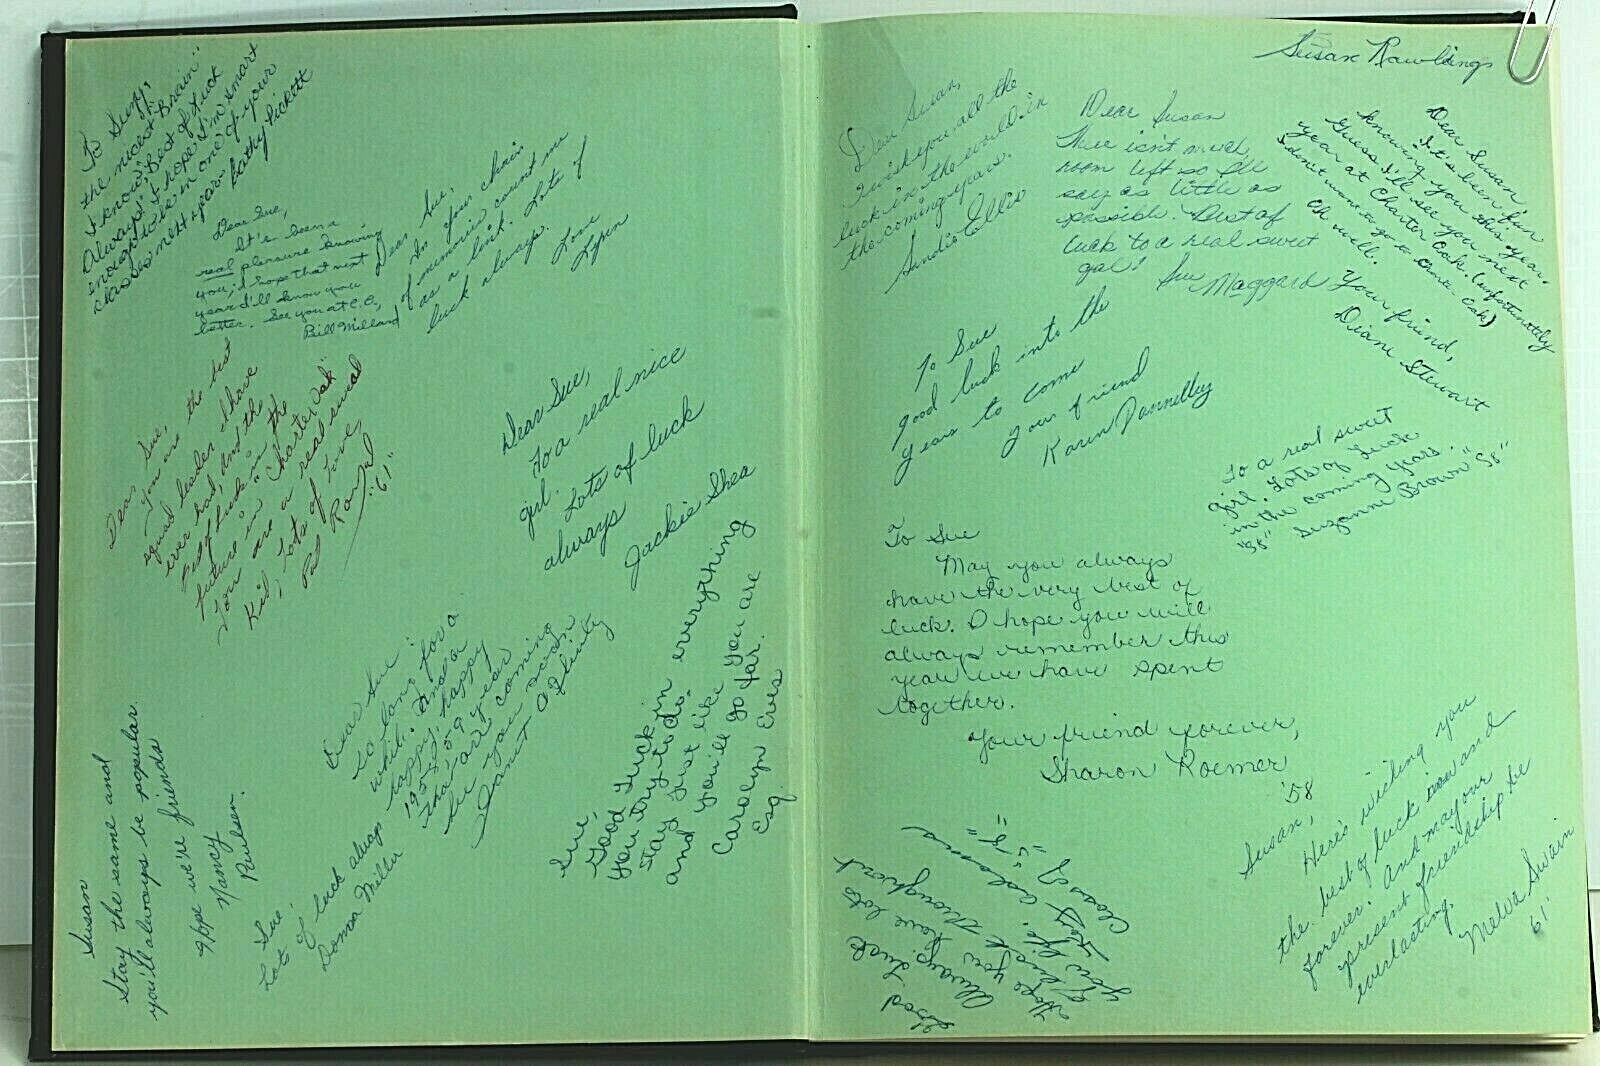 To Suzy,
the nicest "Brain"
I know! Best of Luck
Always! I hope I'm smart
enough to be in one of your
classes next year.
Kathy Pickett
Dear Sue,
It's been a
real pleasure knowing
you; I hope that next
year I'll know you
better. See you at C.O.,
Bill Millard
Dear Sue,
In your chain
of memories count me
as a link. Lots of
luck always.
Love
Dear Sue,
You are the best
squad leader I have
ever had, and the
Best of Luck in the
future in "Charter Oak"
You are a real swell
Kid, Lots of Love,
Pat
"61"
Dear Sue,
To a real nice
girl. Lots of luck
always
Jackie Shea
Dear Sue:
So long for a
while. And a
happy, happy
1958-59 year
that are coming
See you soon
Janet
Sue,
Good Luck in everything
you try to do.
Stay just like you are
and you'll go far.
Carolyn Eves
Esq.
Susan
Stay the same and
you'll always be popular.
I hope we're friends
Nancy
Paulsen.
Sue,
Lots of luck always
Donna Miller
Susan Rawlings
Dear Susan,
I wish you all the
luck in the world in
the coming years.
Sandie Ellis
Dear Susan
There isn't much
room left so I'll
say as little as
possible. Best of
luck to a real sweet
gal!
Sue Maggard
Dear Susan,
It's been fun
knowing you this year.
Guess I'll see you next
year at Charter Oak. (unfortunately
I don't wanna go to Charter Oak)
Oh well.
Your friend,
Diane Stewart
To Sue
good luck into the
years to come
your friend
Karen Dannelley
To a real sweet
girl. Lots of Luck
in the coming years.
"58" Suzanne Brown "58"
To Sue
May you always
have the very best of
luck. I hope you will
always remember this
year we have spent
together.
Your friend forever,
Sharon Roemer
'58
Susan,
Here's wishing you
the best of luck now and
forever. And may our
present friendship be
everlasting.
Melva Swain
'61'
Good Luck
Always. Hope
you have lots
of luck throughout
your life.
Class of "58"